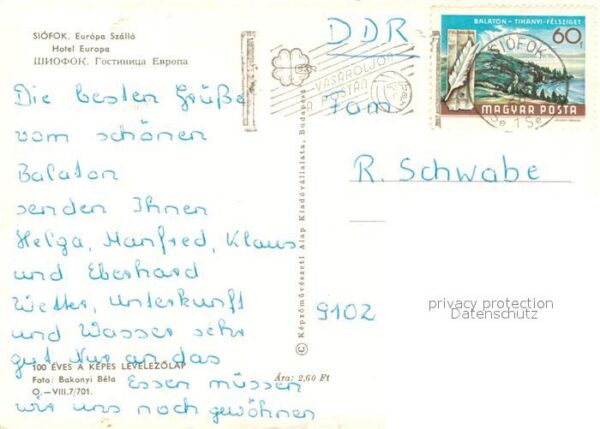 SIÓFOK. Európa Szálló
Hotel Europa
ШИОФОК. Гостиница Европа
Die besten Grüße
vom schönen
Balaton
senden Ihnen
Helga, Manfred, Klaus
und Eberhard
Wetter, Unterkunft
und Wasser sehr
gut. Nur an das
Essen müssen
wir uns noch gewöhnen
100 ÉVES A KÉPES LEVELEZŐLAP
Foto: Bakonyi Béla
O.—VIII.7/701.
Ára: 2,60 Ft
© Képzőművészeti Alap Kiadóvállalata, Budapest
DDR
VÁSÁROLJON
A POSTÁN
BALATON - TIHANYI-FÉLSZIGET
60f
SIÓFOK
MAGYAR POSTA
Fam.
R. Schwabe
9102
privacy protection
Datenschutz